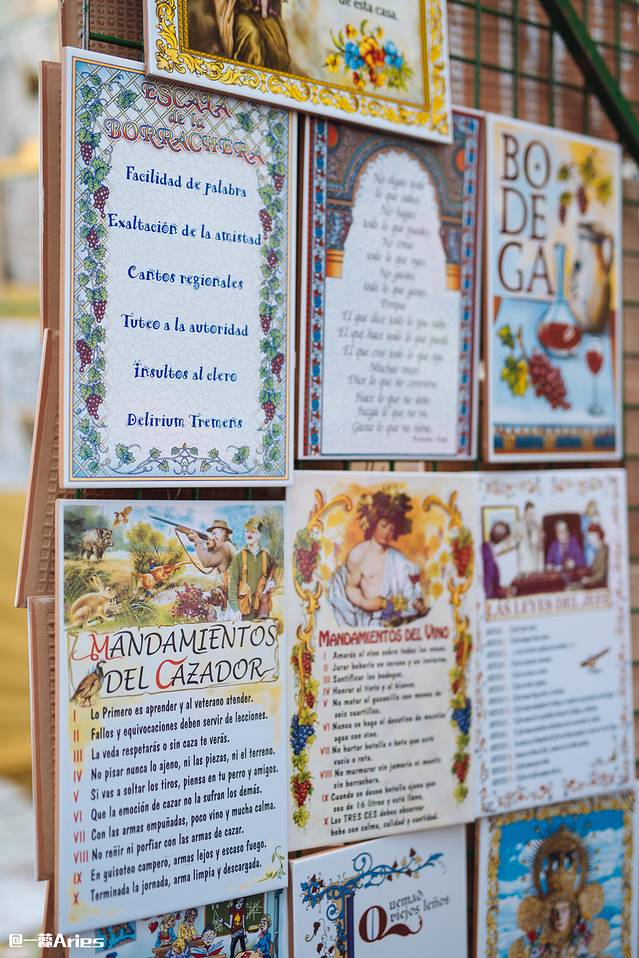 de esta casa.
ESCALA
de la
BORRACHERA
Facilidad de palabra
Exaltación de la amistad
Cantos regionales
Tuteo a la autoridad
Insultos al clero
Delirium Tremens
No digas todo
lo que sabes.
No hagas
todo lo que puedes.
No creas
todo lo que oyes.
No gastes
todo lo que tienes.
Porque
El que dice todo lo que sabe.
El que hace todo lo que puede.
El que cree todo lo que oye.
Muchas veces
Dice lo que no conviene.
Hace lo que no debe.
Juzga lo que no ve.
Gasta lo que no tiene.
BO
DE
GA
MANDAMIENTOS
DEL CAZADOR
I Lo Primero es aprender y al veterano atender.
II Fallos y equivocaciones deben servir de lecciones.
III La veda respetarás o sin caza te verás.
IV No pisar nunca lo ajeno, ni las piezas, ni el terreno.
V Si vas a soltar los tiros, piensa en tu perro y amigos.
VI Que la emoción de cazar no la sufran los demás.
VII Con las armas empuñadas, poco vino y mucha calma.
VIII No reñir ni porfiar con las armas de cazar.
IX En guisoteo campero, armas lejos y escaso fuego.
X Terminada la jornada, arma limpia y descargada.
MANDAMIENTOS DEL VINO
I Amarás el vino sobre todas las cosas.
II Jurar beberlo en verano y en invierno.
III Santificar las bodegas.
IV Honrar al tinto y al blanco.
V No matar el gusanillo con menos de
seis cuartillos.
VI Nunca se haga el desatino de mezclar
agua con vino.
VII No hurtar botella o bota que esté
vacía o rota.
VIII No murmurar sin jamarla ni mentir
sin barbarla.
IX Cuando se desee botella ajena que
sea de 16 litros y esté llena.
X Las TRES CES debes observar
bebe con calma, calidad y cantidad.
LAS LEYES DEL JEFE
Quemad
viejos leños
@一蕊Aries